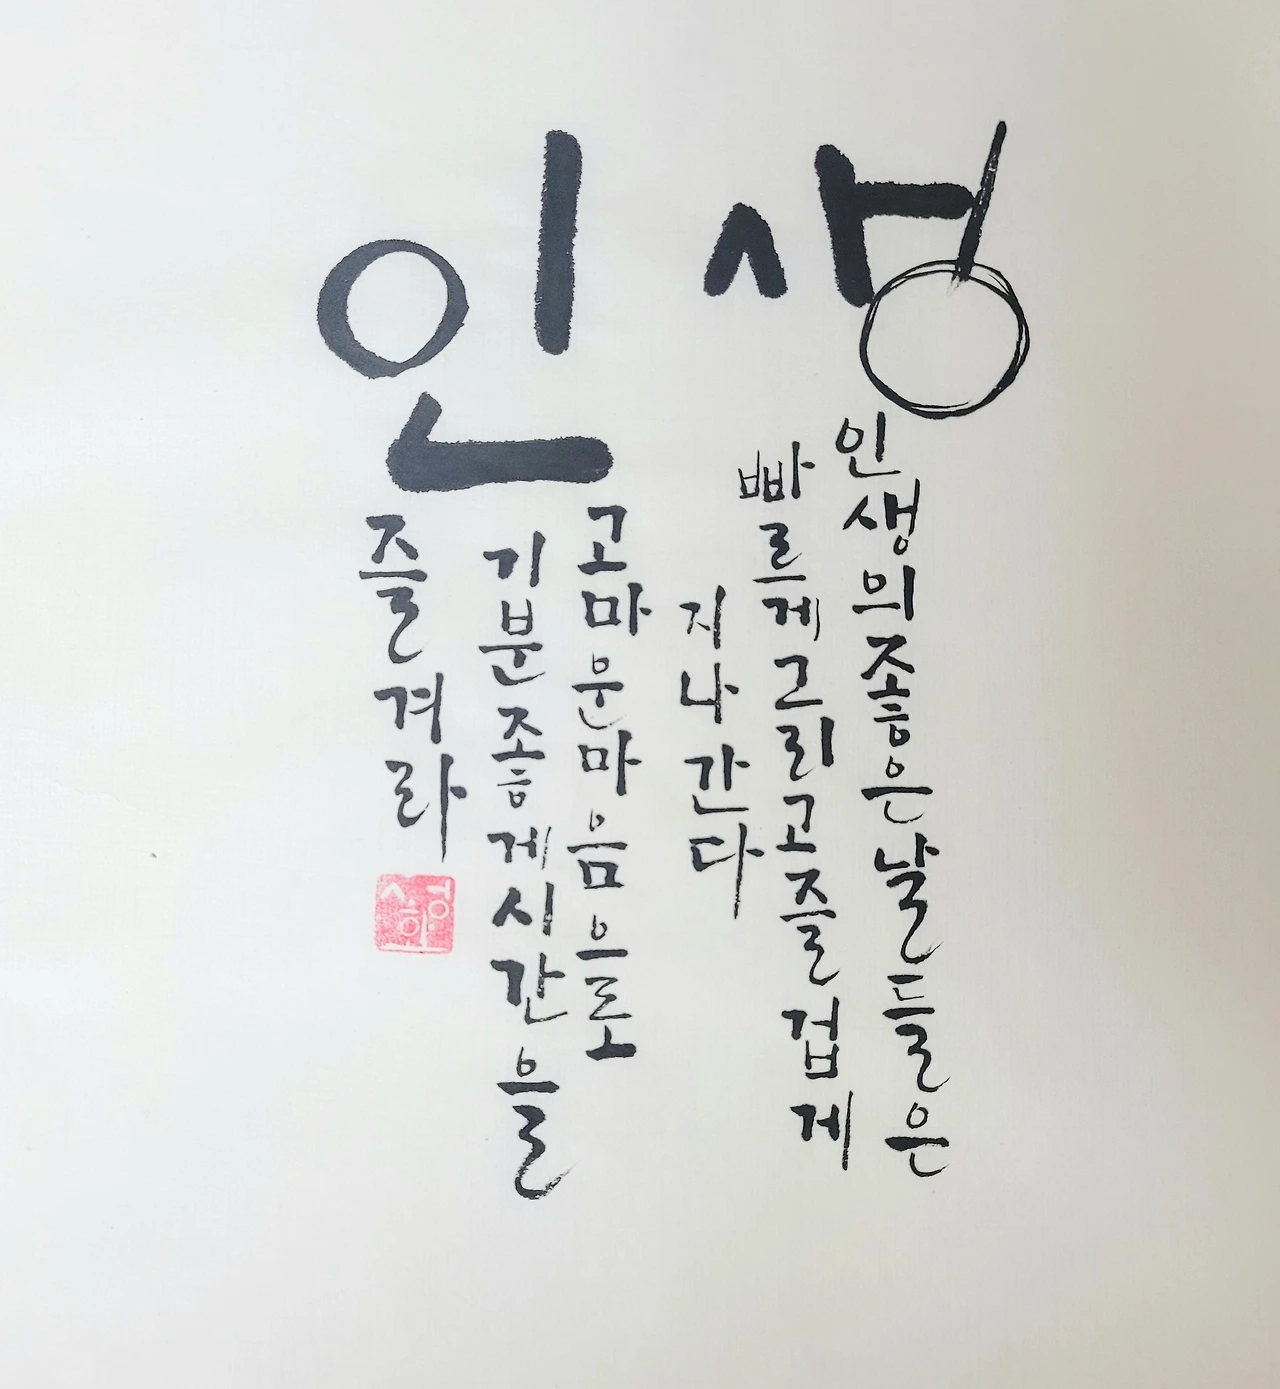 인생
인생의좋은날들은
빠르게그리고즐겁게
지나간다
고마운마음으로
기분좋게시간을
즐겨라